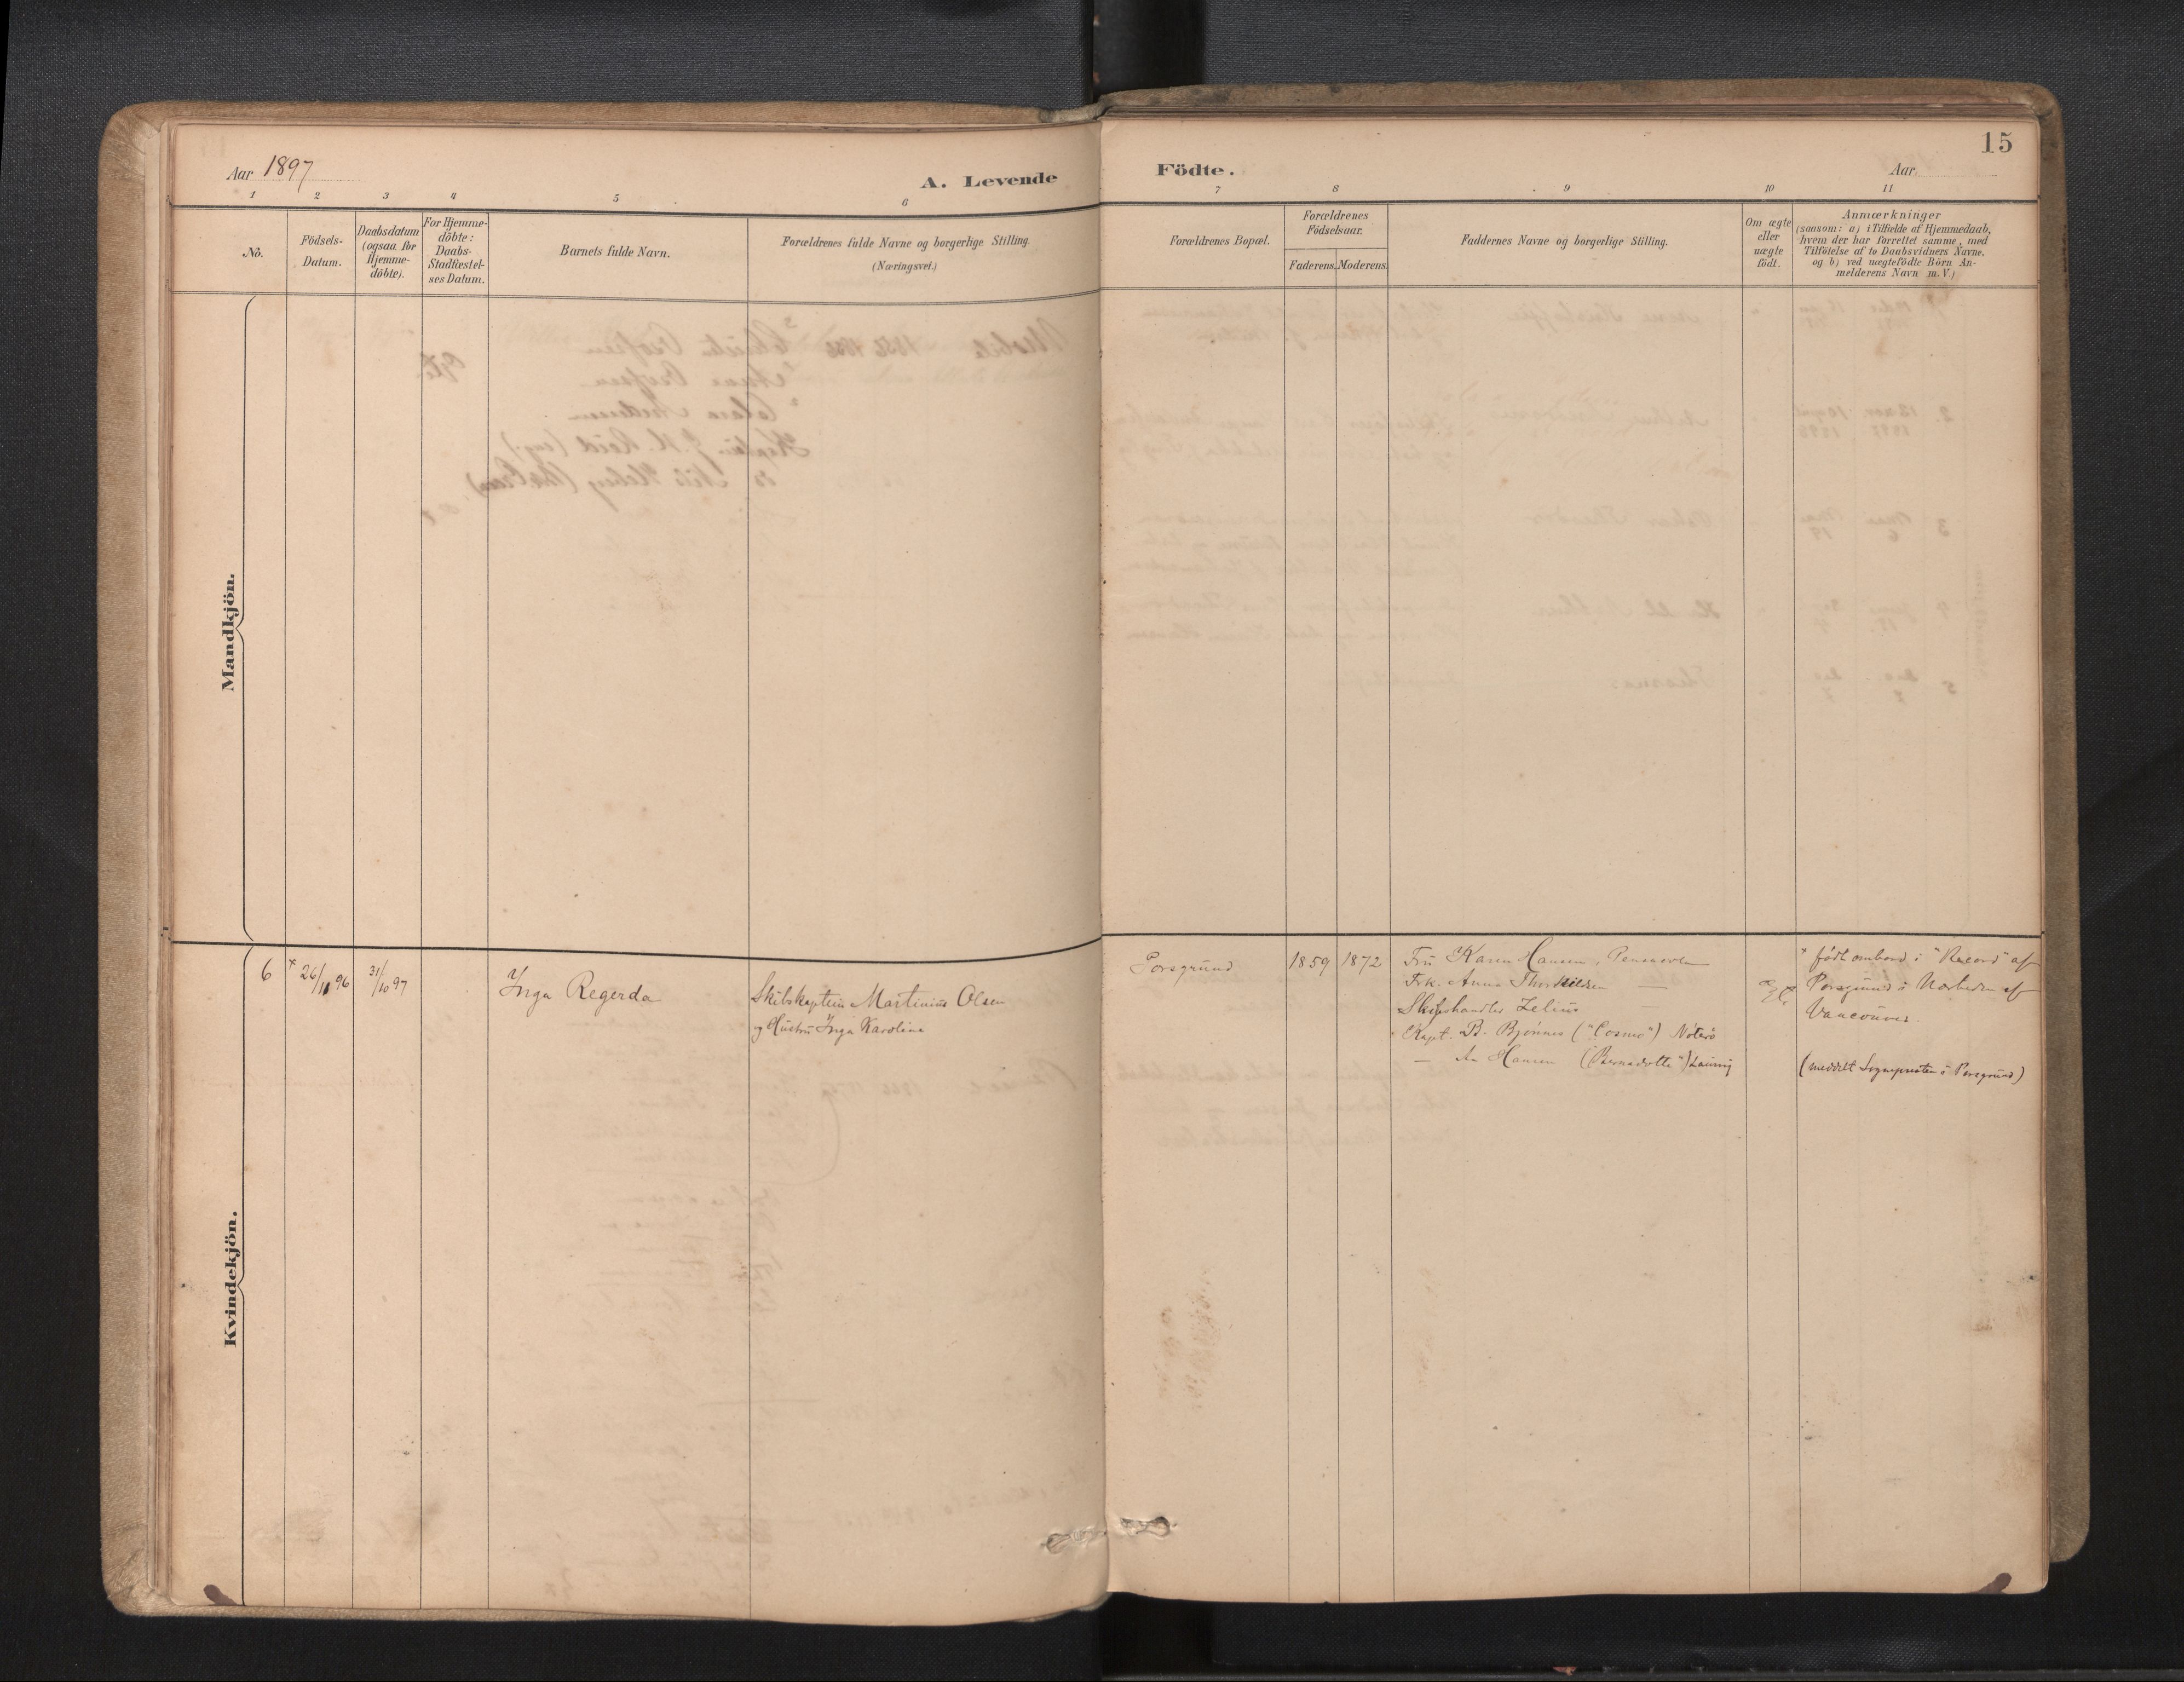 15
Aar 1897
A. Levende
Födte.
Aar.
1 2 3 4 5 6 7 8 9 10 11
No.
Födsels-
Datum.
Daabsdatum
(ogsaa for
Hjemme-
döbte).
For Hjemme-
döbte:
Daabs-
Stadfæstel-
ses Datum.
Barnets fulde Navn.
Forældrenes fulde Navne og borgerlige Stilling.
(Næringsvei.)
Forældrenes Bopæl.
Forældrenes
Födselsaar.
Faderens. Moderens.
Faddernes Navne og borgerlige Stilling.
Om ægte
eller
uægte
födt.
Anmærkninger
(saasom: a) i Tilfælde af Hjemmedaab,
hvem der har forrettet samme, med
Tilföielse af to Daabsvidners Navne.
og b) ved uægtefödte Börn An-
melderens Navn m. V.)
Mandkjön.
Kvindekjön.
6
× 26/11 96
31/10 97
Inga Regerda
Skibskaptein Martinius Olsen
og Hustru Inga Karoline
Porsgrund
1859
1872
Fru Karen Hansen, Pensacola
Frk. Anna Thorkildsen —
Skibshandler Zelius
Kapt. B. Bjönnes ("Cosmo") Nöterö
— Hansen ("Bernadotte") Laurvig
× född ombord i "Record" af
Porsgrund i Nærheden af
Vancouver.
(meddelt Sognepresten i Porsgrund)